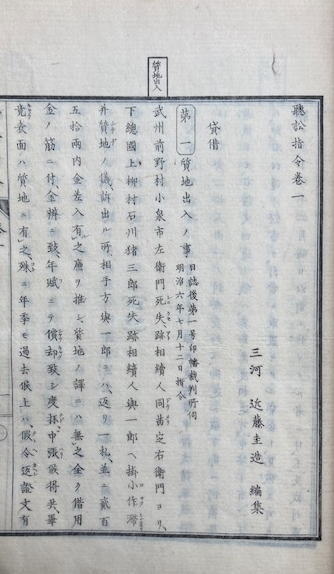 質地出入
聽訟指令卷一
三河 近藤圭造 編集
貸借
第一 質地出入ノ事 日誌後第一号印幡裁判所伺 明治六年七月十二日指令
武州前野村小泉市左衛門死失、跡相續人同苗定右衛門ヨリ、
下總國上柳村石川猪三郎死失跡相續人與一郎ヘ掛小作滯
并質地ノ儀訴出ル所相手方與一郎ヨリハ、返リ一札並ニ貳百
五拾兩内金差入有之廉ヲ推シ質地ノ譯ニハ無之全ク借用
金ノ筋ニ付、金辨ニ致、年賦ニテ償却致シ度抔申張候得共、畢
竟文面ハ質地ニ有之、殊ニ年季モ過去候上ハ、假令返證文有